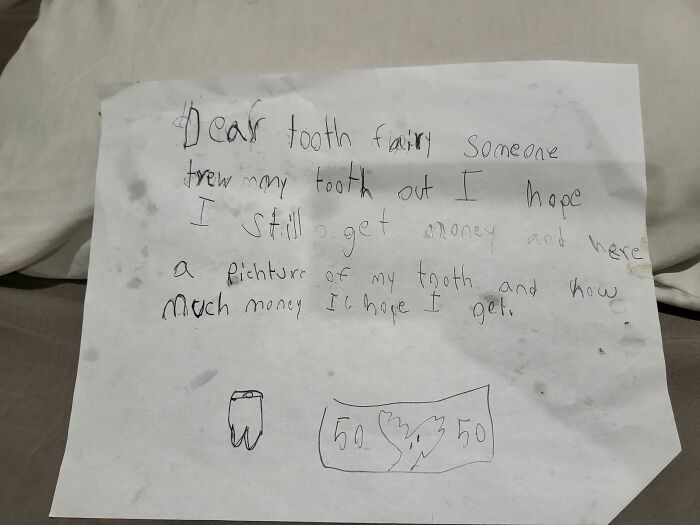 Dear tooth fairy someone
trew many tooth out I hope
I still get money and here
a pichture of my tooth and how
much money I hope I get.
50 50